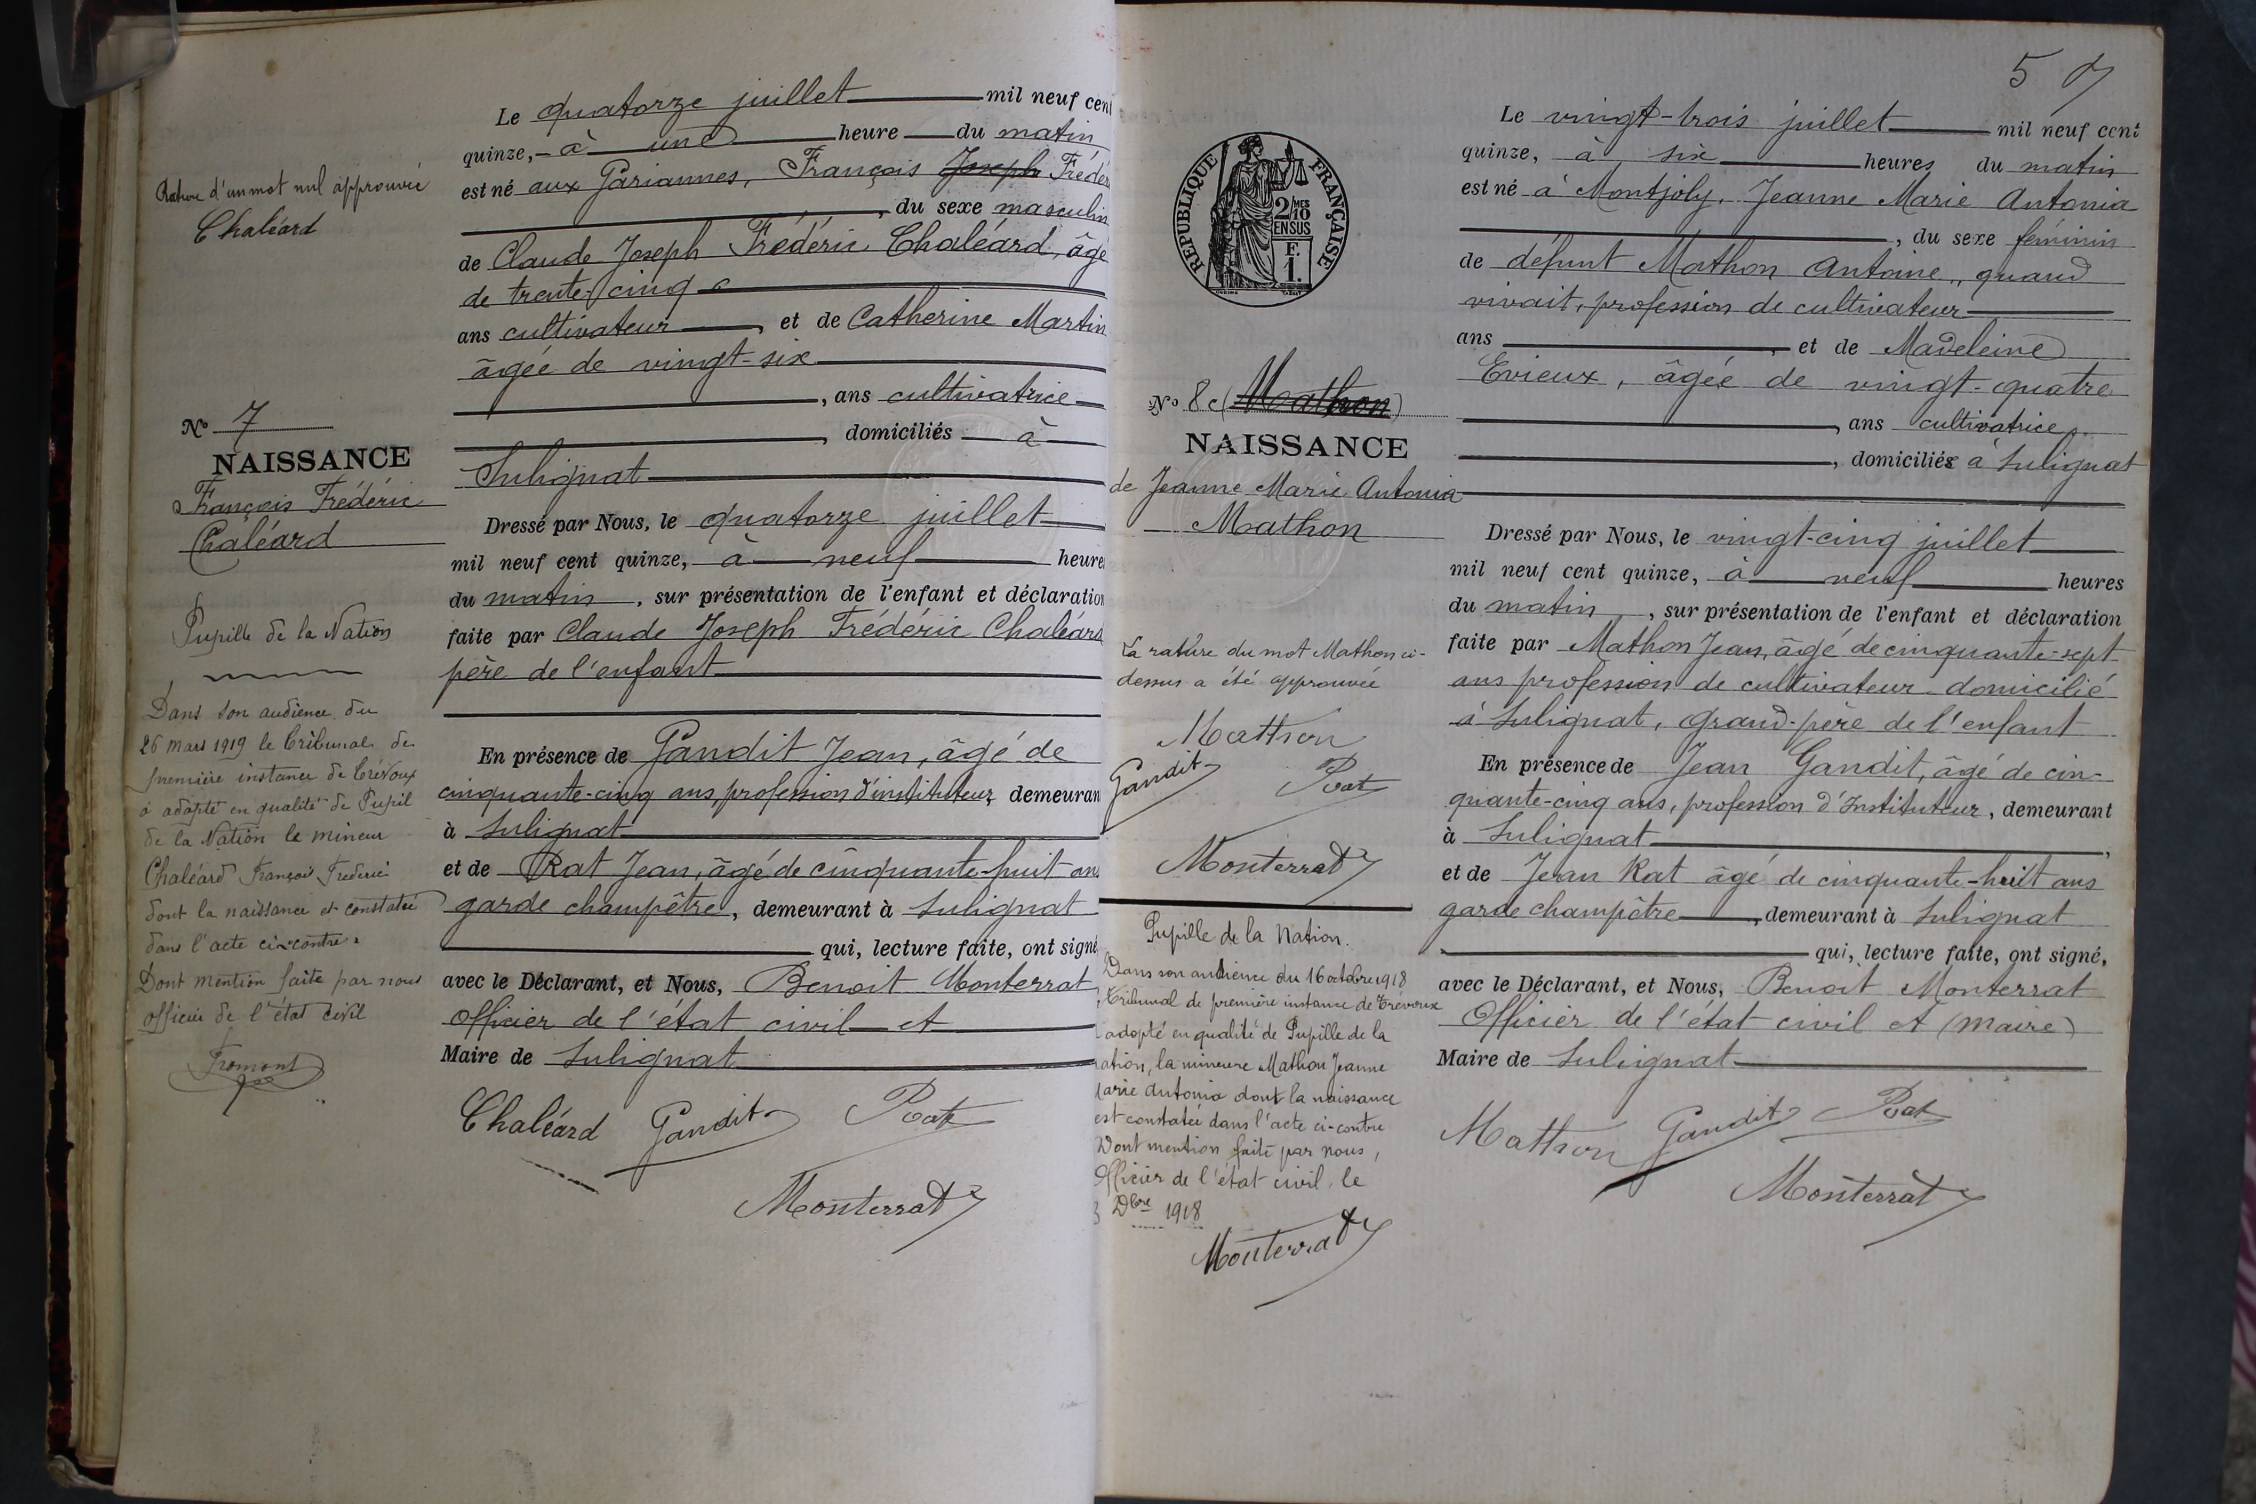 Rature d'un mot nul approuvée
Chaléard
Nº 7
NAISSANCE
François Frédéric
Chaléard
Pupille de la Nation
Dans son audience du
26 mars 1919 le tribunal de
première instance de Trévoux
a adopté en qualité de Pupil
de la Nation le mineur
Chaléard François Frederic
dont la naissance est constatée
dans l'acte ci-contre.
Dont mention faite par nous
officier de l'état civil
Fromont
Le quatorze juillet mil neuf cent
quinze, à une heure du matin,
est né aux Gariannes, François Joseph Frédér
, du sexe masculin
de Claude Joseph Frédéric Chaléard, âgé
de trente-cinq
ans cultivateur, et de Catherine Martin
âgée de vingt-six
, ans cultivatrice
, domiciliés à
Sulignat
Dressé par Nous, le quatorze juillet
mil neuf cent quinze, à neuf heure
du matin, sur présentation de l'enfant et déclaration
faite par Claude Joseph Frédéric Chaléard
père de l'enfant
En présence de Gandit Jean, âgé de
cinquante-cinq ans, profession d'instituteur, demeuran
à Sulignat
et de Rat Jean, âgé de cinquante-huit ans
garde champêtre, demeurant à Sulignat
qui, lecture faite, ont signé
avec le Déclarant, et Nous, Benoit Monterrat
officier de l'état civil et
Maire de Sulignat
Chaléard Gandit Rat
Monterrat
5
RÉPUBLIQUE FRANÇAISE
2/10MES
EN SUS
F.
1.
Nº 8 (Mathon)
NAISSANCE
de Jeanne Marie Antonia
Mathon
La rature du mot Mathon ci-
dessus a été approuvée
Mathon
Gandit Rat
Monterrat
Pupille de la Nation.
Dans son audience du 16 octobre 1918
Tribunal de première instance de Trévoux
adopté en qualité de Pupille de la
ation, la mineure Mathon Jeanne
arie Antonia dont la naissance
est constatée dans l'acte ci-contre
Dont mention faite par nous,
Officier de l'état civil, le
3 Dbre 1918
Monterrat
Le vingt-trois juillet mil neuf cent
quinze, à six heures du matin
est né à Montjoly, Jeanne Marie Antonia
, du sexe féminin
de défunt Mathon Antoine, quand
vivait, profession de cultivateur
ans, et de Madeleine
Evieux, âgée de vingt-quatre
, ans cultivatrice,
, domiciliés à Sulignat
Dressé par Nous, le vingt-cinq juillet
mil neuf cent quinze, à neuf heures
du matin, sur présentation de l'enfant et déclaration
faite par Mathon Jean, âgé de cinquante-sept
ans profession de cultivateur domicilié
à Sulignat, Grand-père de l'enfant
En présence de Jean Gandit, âgé de cin-
quante-cinq ans, profession d'Instituteur, demeurant
à Sulignat,
et de Jean Rat âgé de cinquante-huit ans
garde champêtre, demeurant à Sulignat
qui, lecture faite, ont signé,
avec le Déclarant, et Nous, Benoit Monterrat
Officier de l'état civil et (maire)
Maire de Sulignat
Mathon Gandit Rat
Monterrat